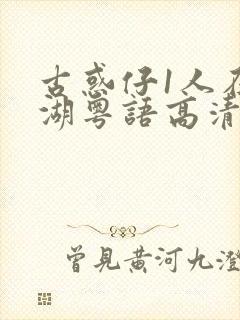 古惑仔1人在
湖粵語高清
曾見黃河九澄